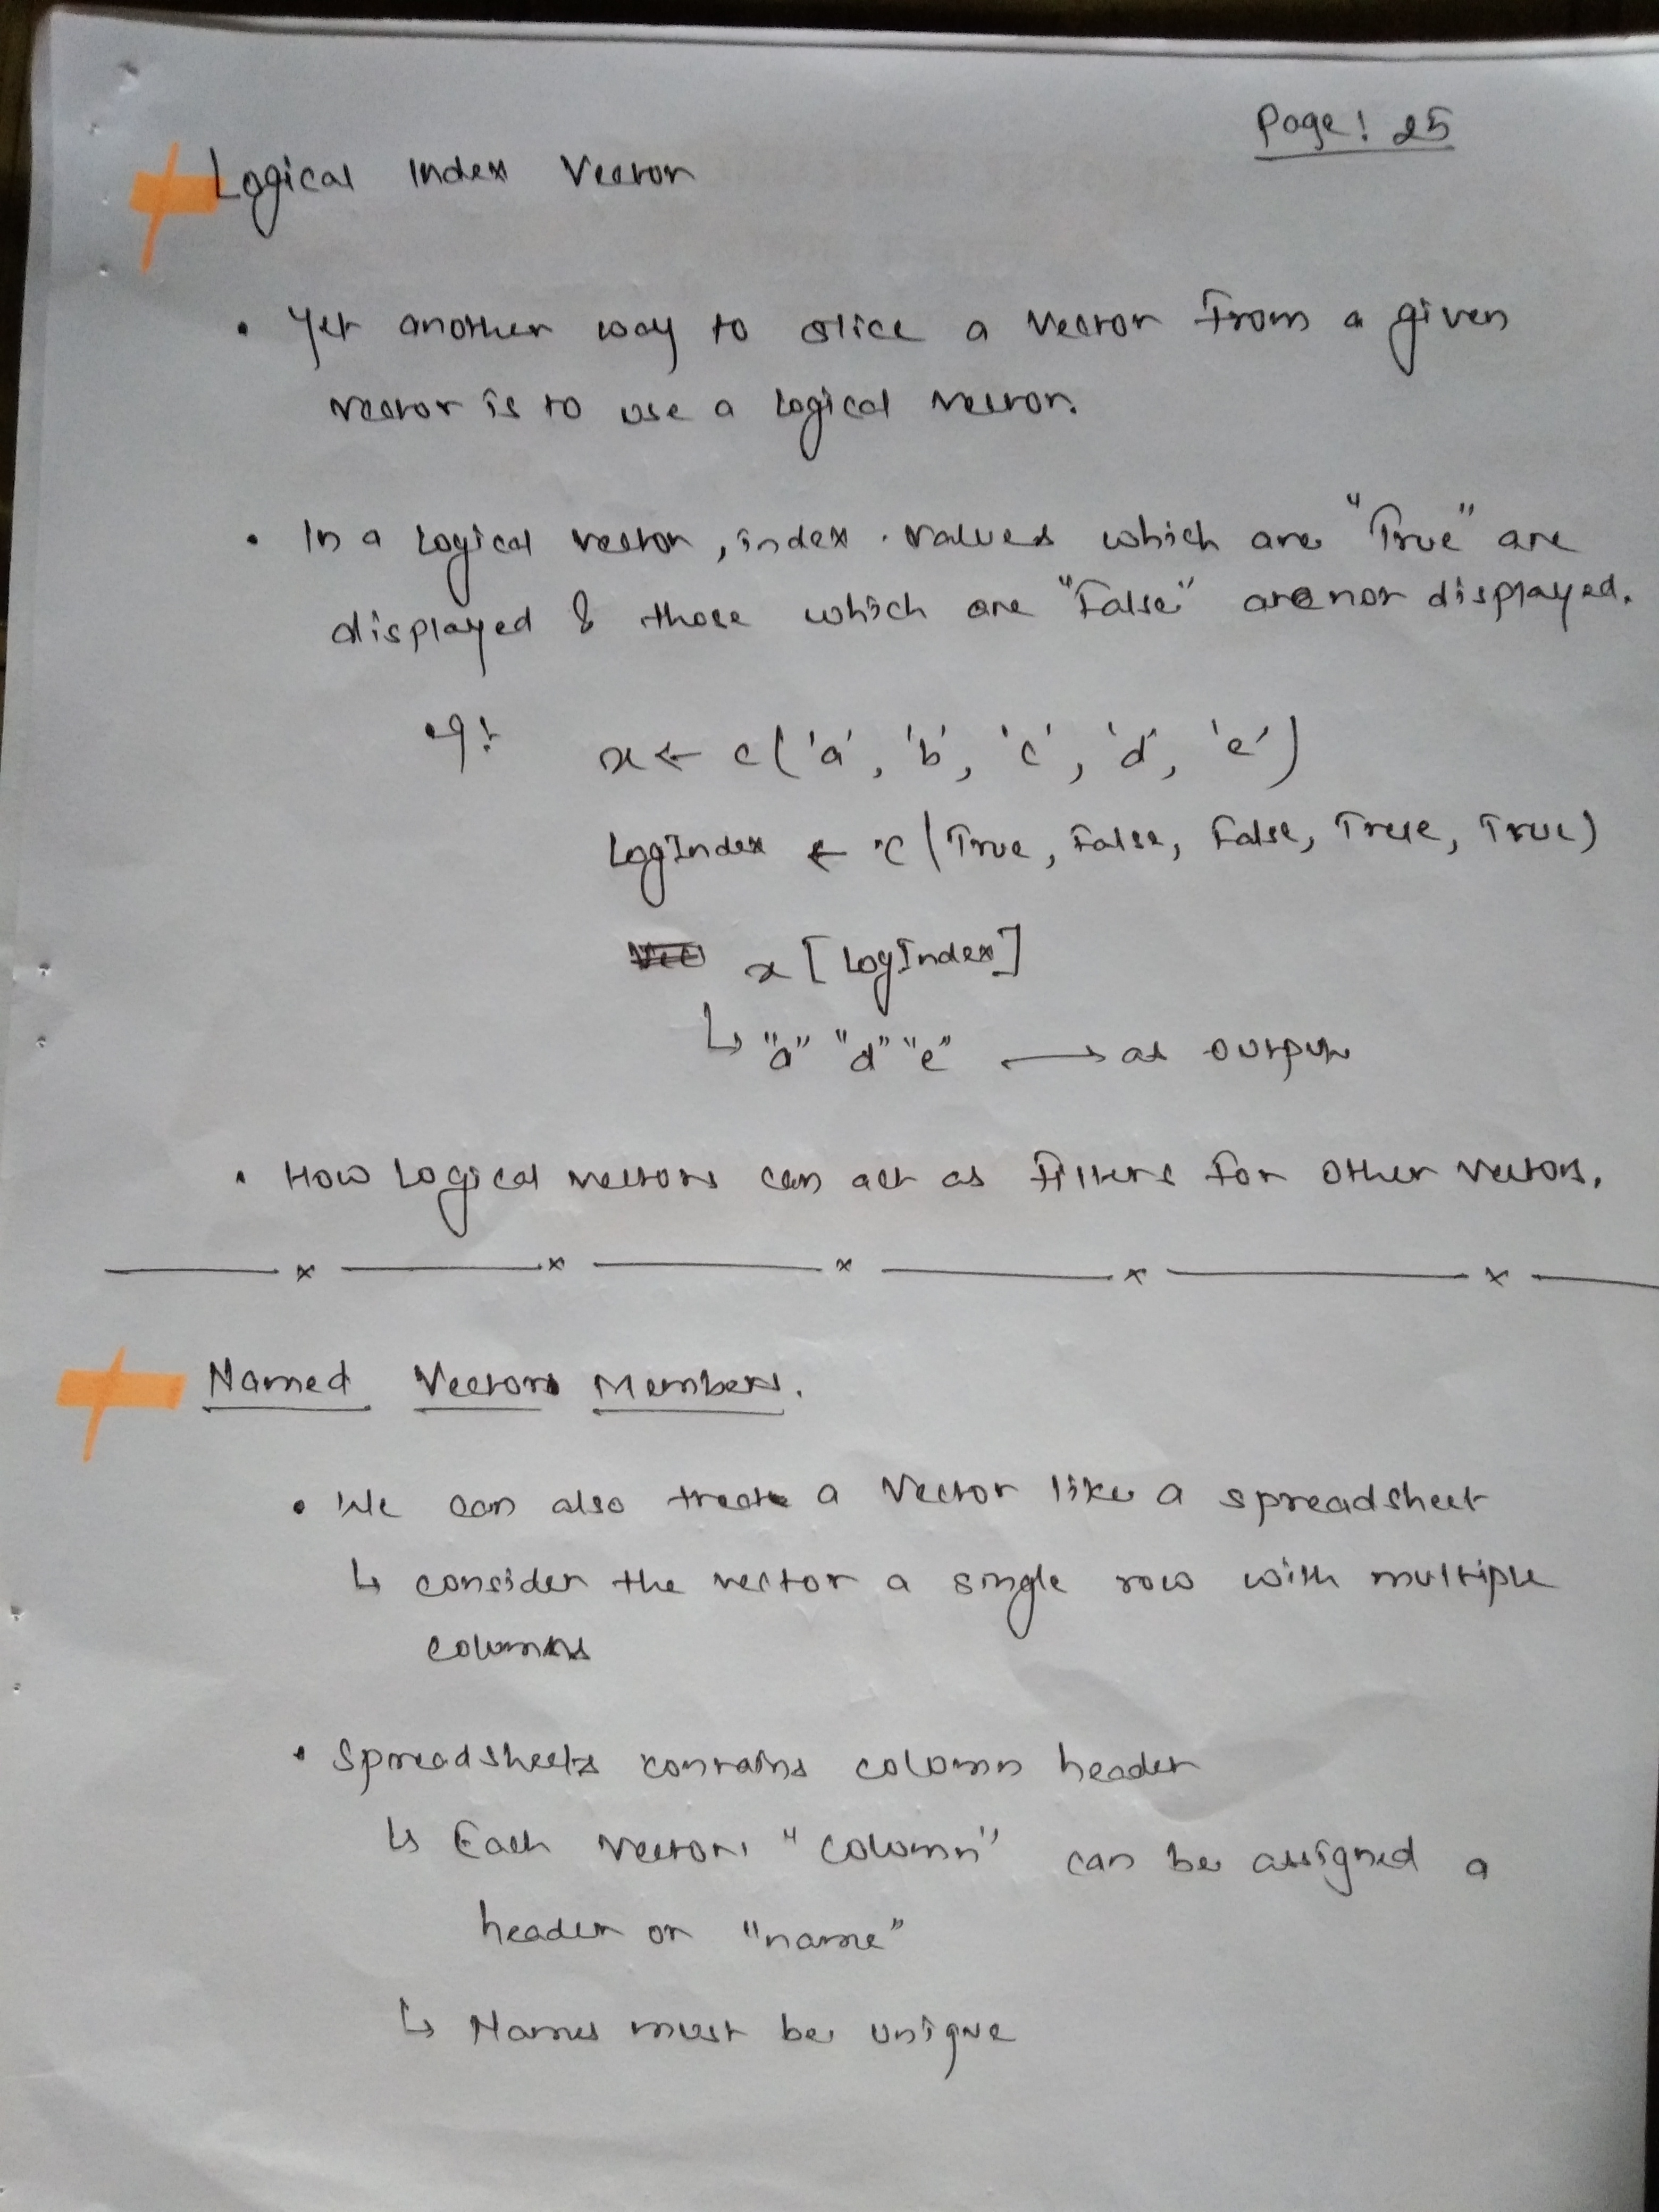 Page: 25
Logical Index Vector
• Yet another way to slice a vector from a given
vector is to use a logical vector.
• In a logical vector, index values which are "True" are
displayed & those which are "False" are not displayed.
eg: x ← c('a', 'b', 'c', 'd', 'e')
LogIndex ← c(True, False, False, True, True)
x [LogIndex]
↳ "a" "d" "e" → as output
• How Logical vectors can act as filters for other vectors.
Named Vectors Members.
• We can also treat a vector like a spreadsheet
↳ consider the vector a single row with multiple
columns
• Spreadsheets contains column header
↳ Each vectors "column" can be assigned a
header or "name"
↳ Names must be unique